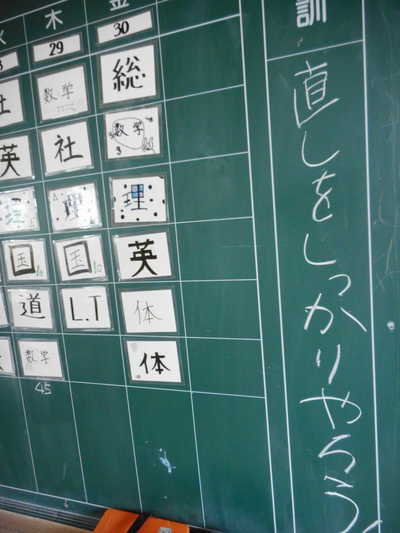 木 金
29 30
数学 総
英 社 数学
理 理 理
国 国 英
道 L.T 体
数学 体
45
訓
直しをしっかりやろう